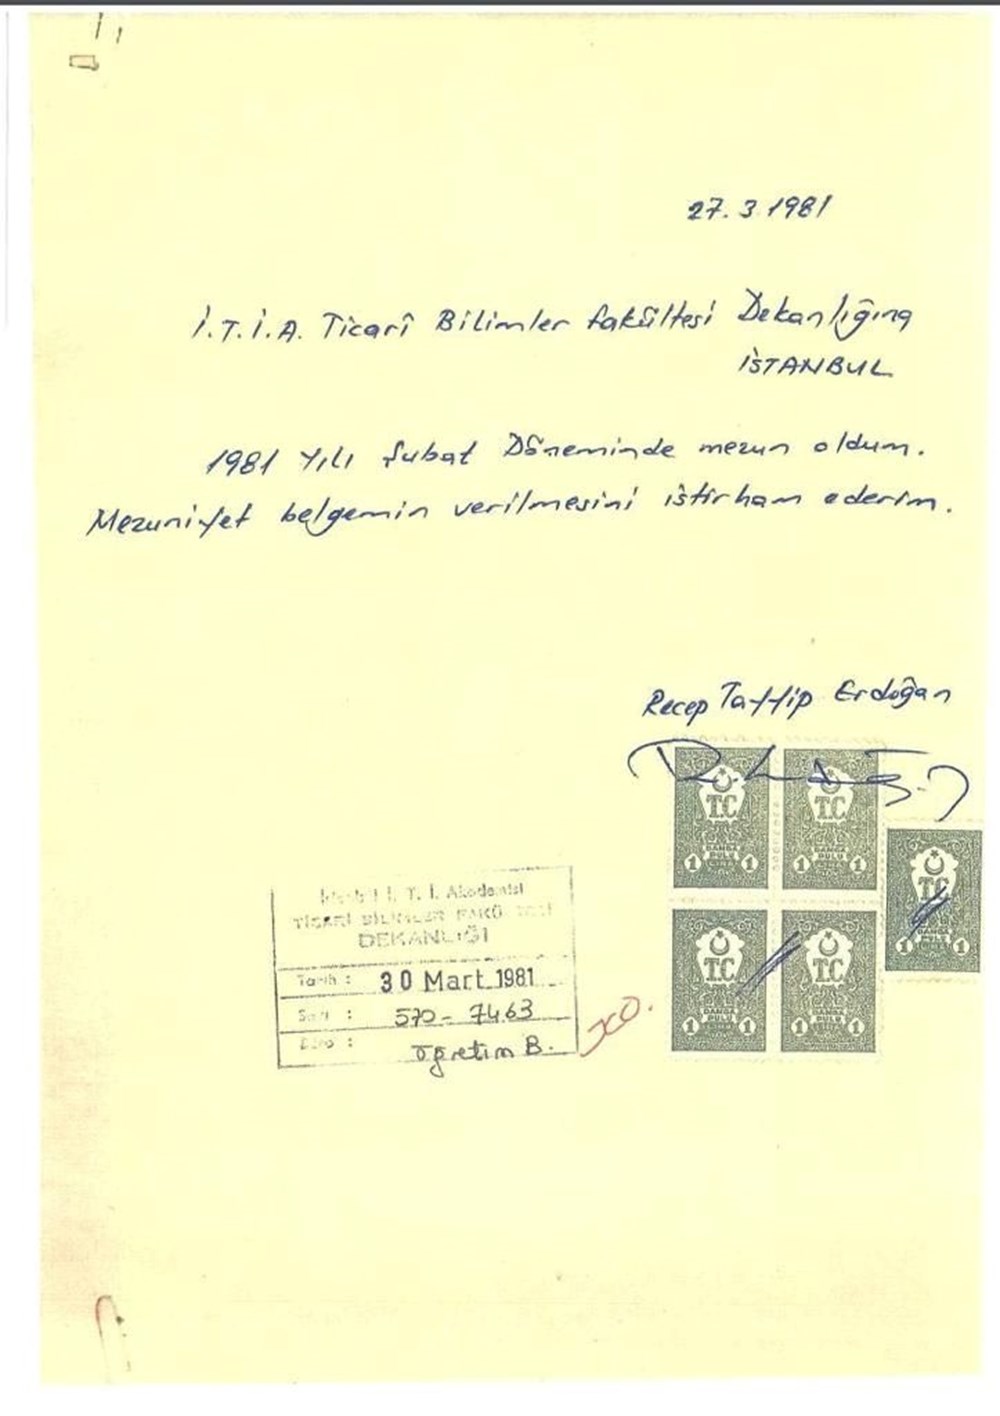 27.3.1981
İ.T.İ.A. Ticarî Bilimler Fakültesi Dekanlığına
İSTANBUL
1981 Yılı Şubat Döneminde mezun oldum.
Mezuniyet belgemin verilmesini istirham ederim.
Recep Tayyip Erdoğan
T.C
DAMGA PULU
1 LİRA 1
T.C
DAMGA PULU
1 LİRA 1
T.C
DAMGA PULU
1 LİRA 1
T.C
DAMGA PULU
1 LİRA 1
T.C
DAMGA PULU
1 LİRA 1
İ. T. İ. Akademisi
TİCARİ BİLİMLER FAKÜLTESİ
DEKANLIĞI
Tarih : 30 Mart 1981
Sayı : 570 - 7463
Büro : Öğretim B.